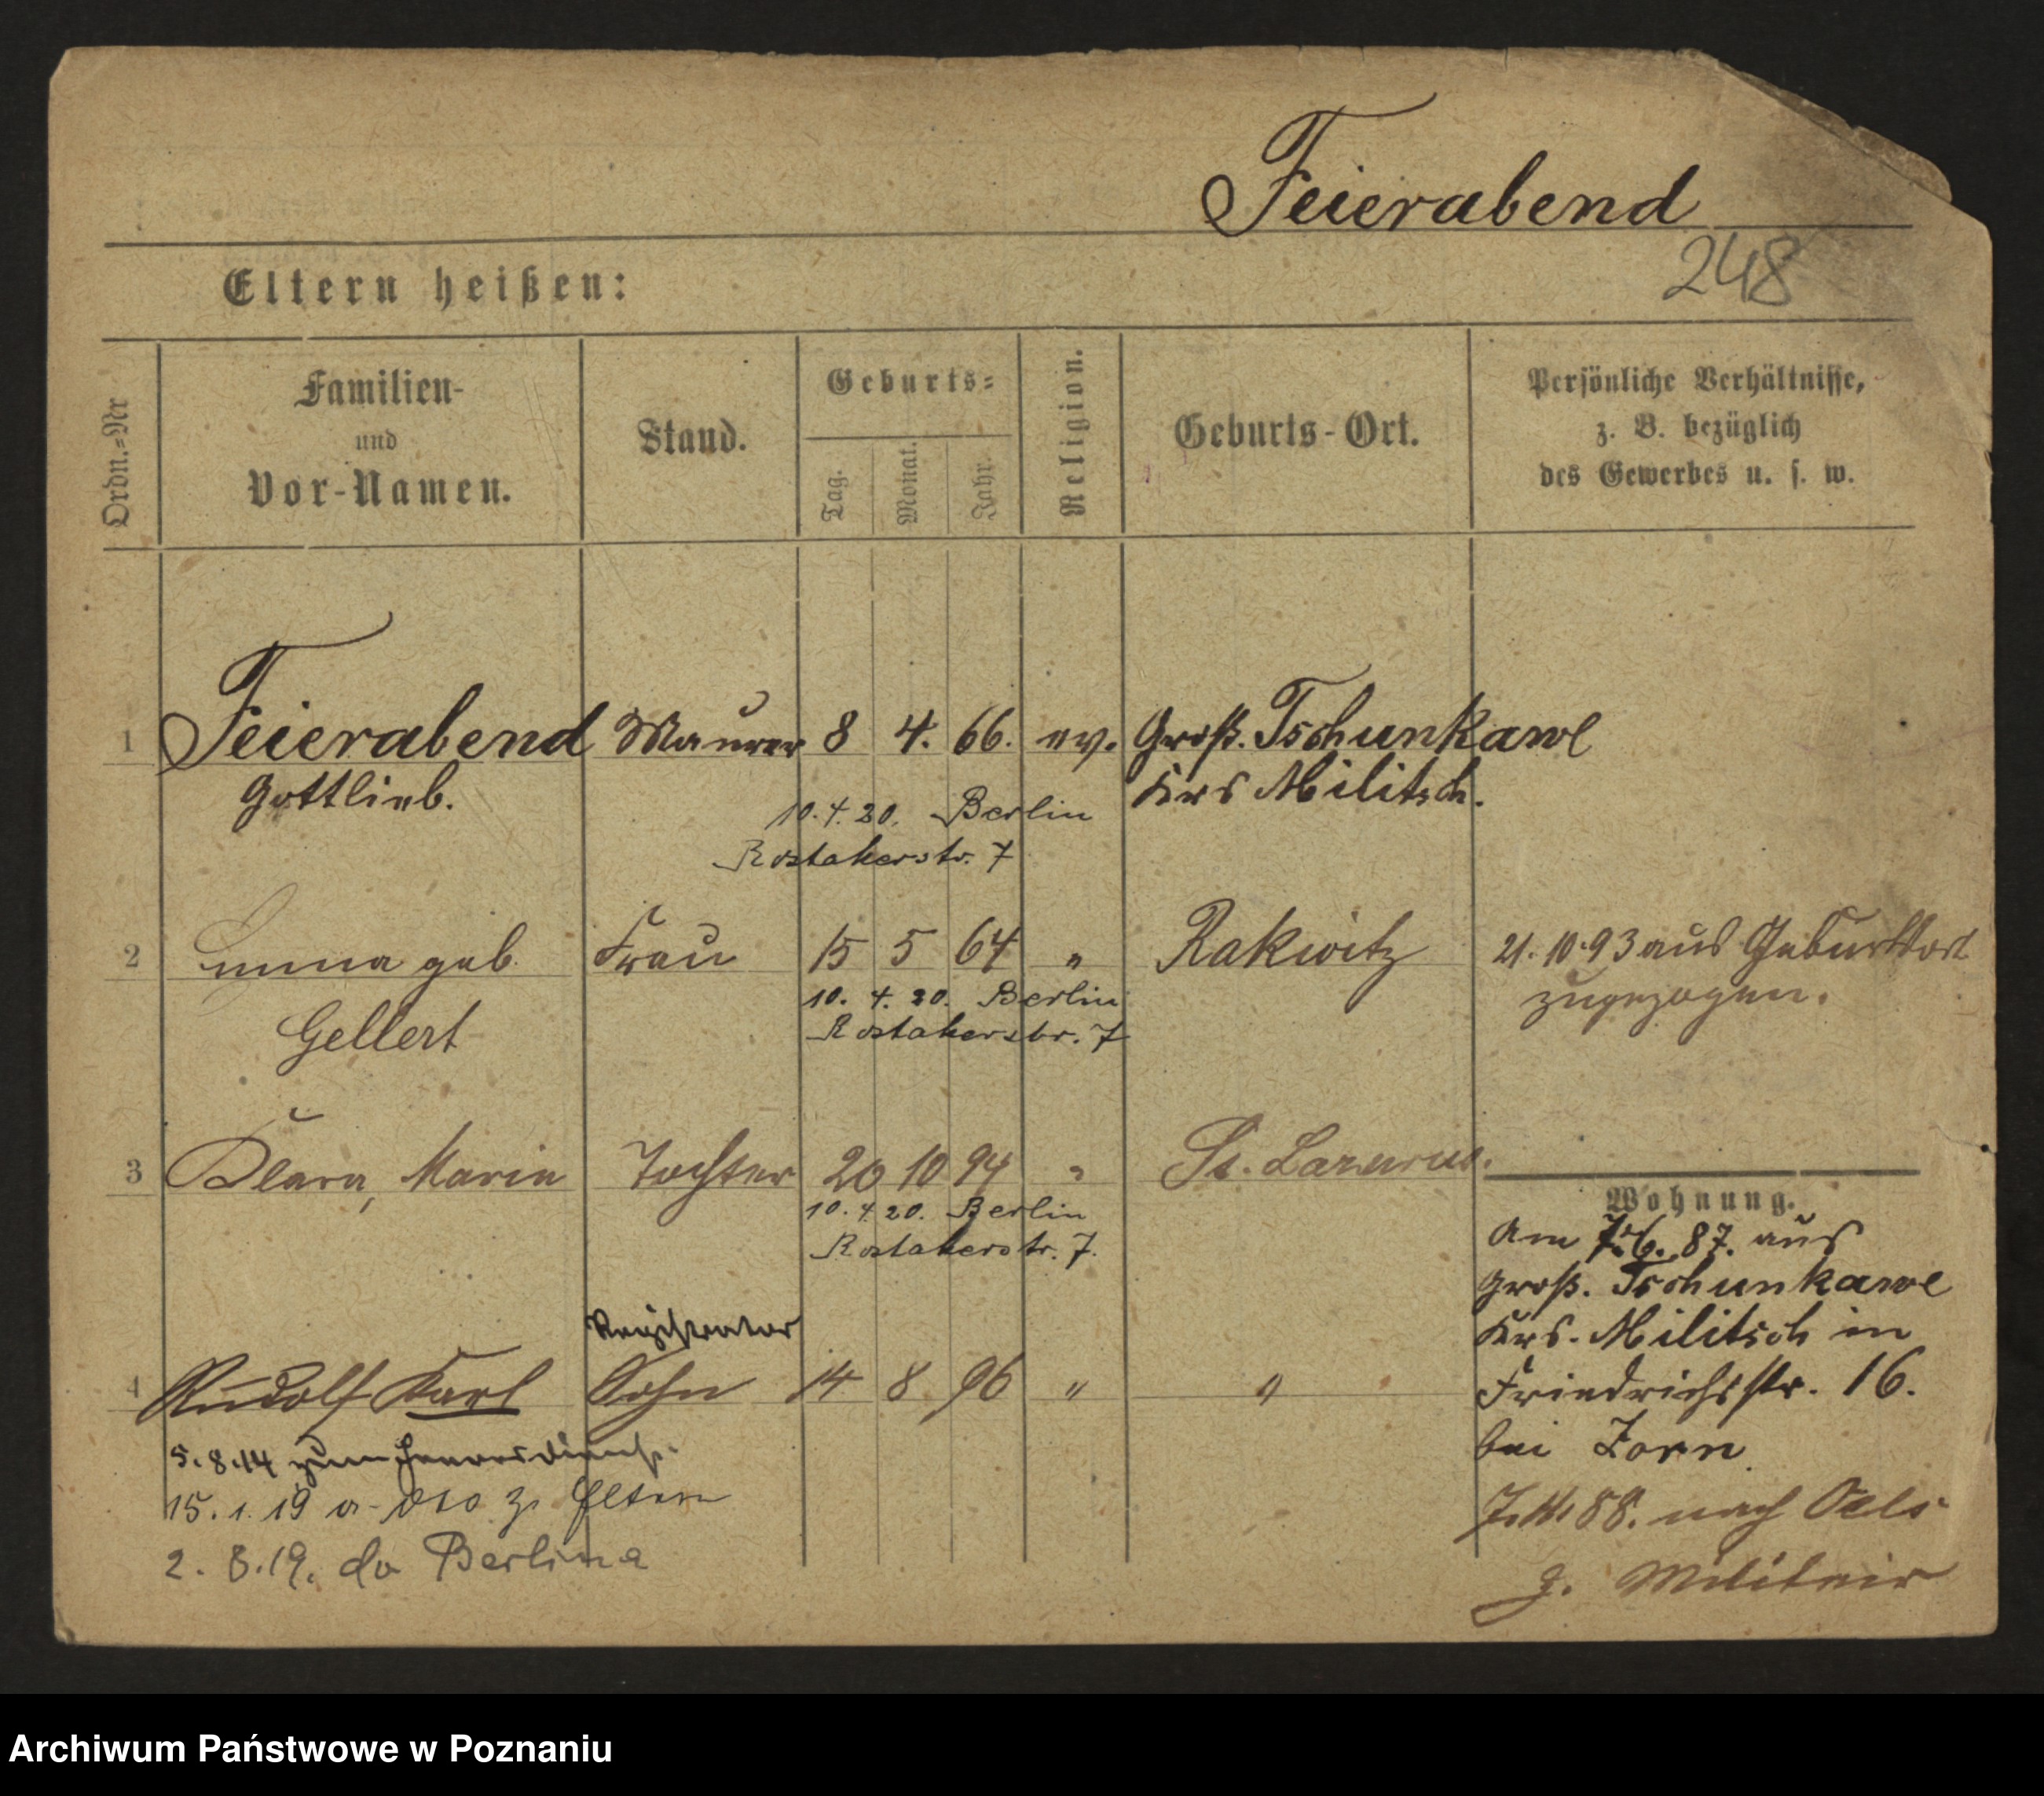 Feierabend
248
Eltern heißen:
Ordn.=Nr
Familien-
und
Vor-Namen.
Stand.
Geburts=
Tag.
Monat.
Jahr.
Religion.
Geburts-Ort.
Persönliche Verhältnisse,
z. B. bezüglich
des Gewerbes u. s. w.
1 Feierabend Maurer 8 4. 66. ev. Groß. Tschunkawe
Gottlieb. Krs Militsch.
10. 4. 20. Berlin
Rostakerstr. 7
2 Emma geb. Frau 15 5 64 " Rakwitz 21. 10. 93 aus Geburtsort
zugezogen.
10. 4. 20. Berlin
Rostakerstr. 7
Gellert
3 Clara, Marie Tochter 20 10 94 " St. Lazarus.
10. 4. 20. Berlin
Rostakerstr. 7.
Registrator
4 Rudolf Karl Sohn 14 8 96 " "
5. 8. 14 zum Heeresdienst.
15. 1. 19 z. Eltern
2. 8. 19. do Berlina
Wohnung.
Am 87. aus
Groß. Tschunkawe
Krs. Militsch in
Friedrichsstr. 16.
bei Zorn
88. nach Oels
z. Militair
Archiwum Państwowe w Poznaniu